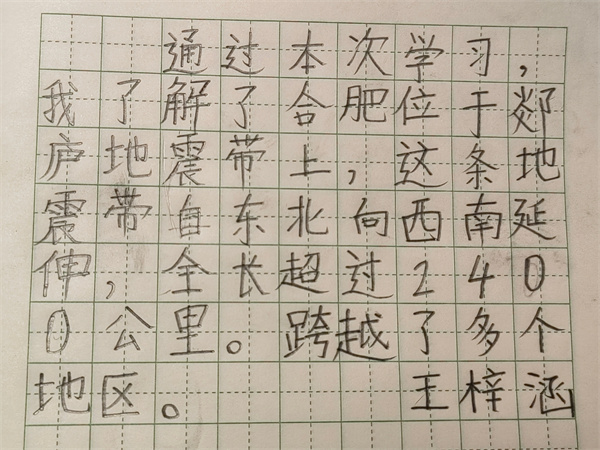 通过本次学习，
我了解了合肥位于郯
庐地震带上，这条地
震带自东北向西南延
伸，全长超过240
0公里。跨越了多个
地区。 王梓涵